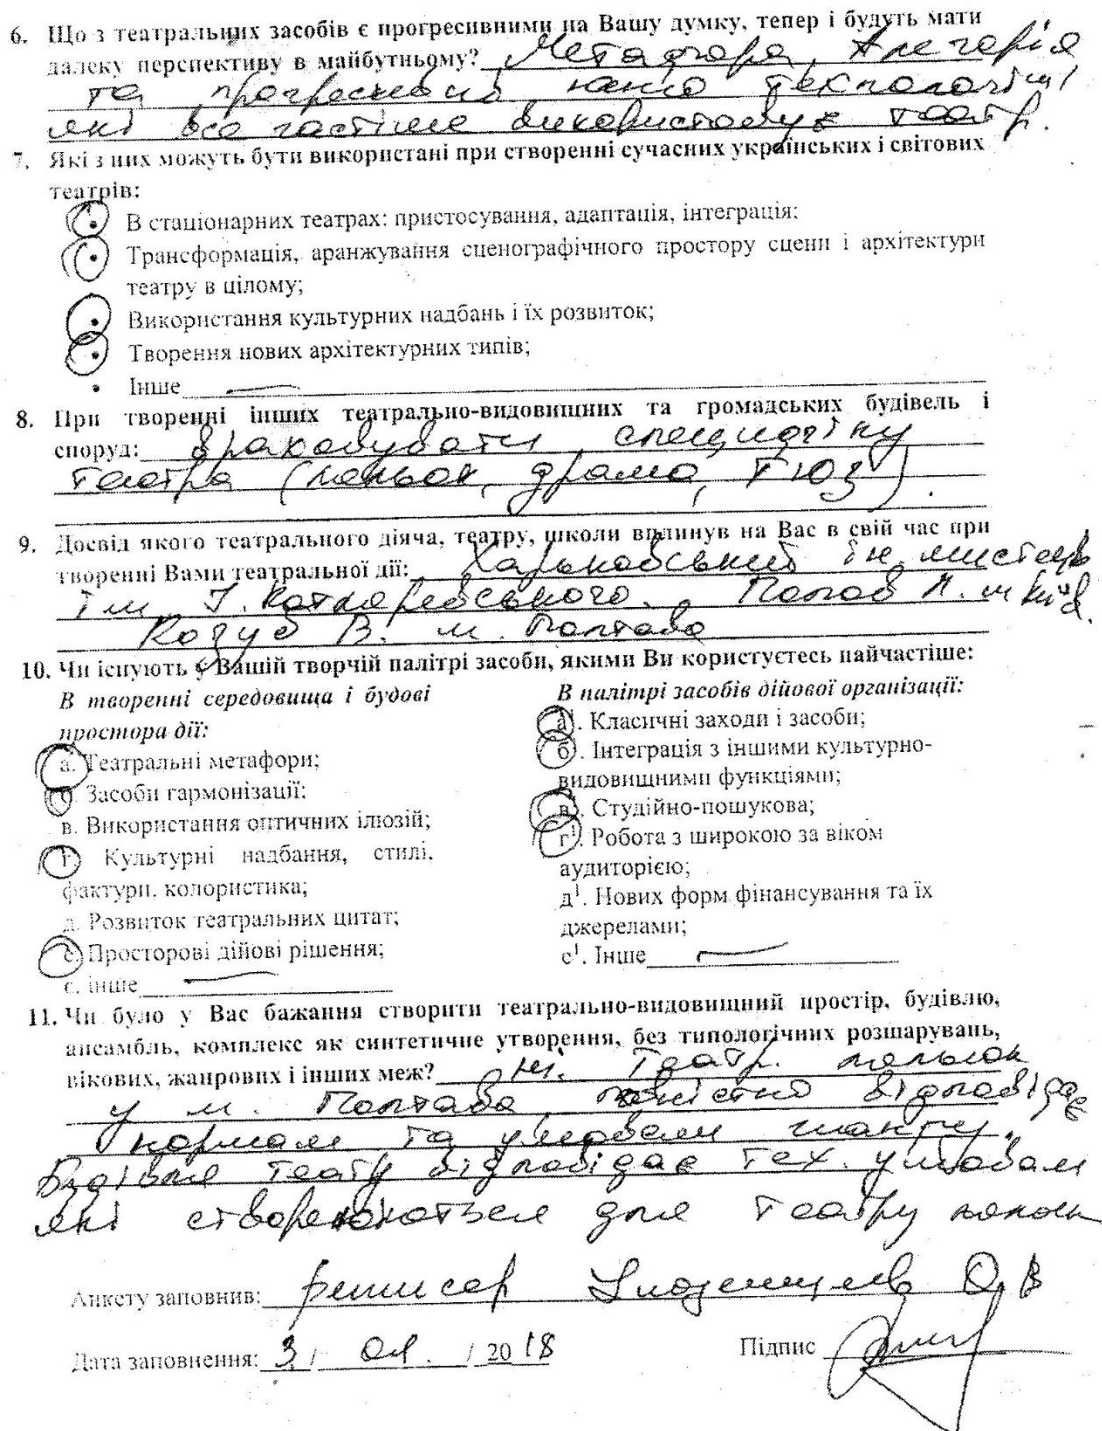 6. Що з театральних засобів є прогресивними на Вашу думку, тепер і будуть мати
далеку перспективу в майбутньому? Метафора, Алегорія
та прогресивні нано технології
які все частіше використовує театр.
7. Які з них можуть бути використані при створенні сучасних українських і світових
театрів:
• В стаціонарних театрах: пристосування, адаптація, інтеграція;
• Трансформація, аранжування сценографічного простору сцени і архітектури
театру в цілому;
• Використання культурних надбань і їх розвиток;
• Творення нових архітектурних типів;
• Інше
8. При творенні інших театрально-видовищних та громадських будівель і
споруд: враховувати специфіку
театра (ляльок, драма, ТЮЗ).
9. Досвід якого театрального діяча, театру, школи вплинув на Вас в свій час при
творенні Вами театральної дії: Харьковський ін. мистецтв
ім. І. Котляревського. Попов Л. м. Київ.
Козуб В. м. Полтава
10. Чи існують у Вашій творчій палітрі засоби, якими Ви користуєтесь найчастіше:
В творенні середовища і будові
простора дії:
а. Театральні метафори;
б. Засоби гармонізації:
в. Використання оптичних ілюзій;
г. Культурні надбання, стилі,
фактури, колористика;
д. Розвиток театральних цитат;
е. Просторові дійові рішення;
є. інше
В палітрі засобів дійової організації:
а¹. Класичні заходи і засоби;
б¹. Інтеграція з іншими культурно-
видовищними функціями;
в¹. Студійно-пошукова;
г¹. Робота з широкою за віком
аудиторією;
д¹. Нових форм фінансування та їх
джерелами;
е¹. Інше
11. Чи було у Вас бажання створити театрально-видовищний простір, будівлю,
ансамбль, комплекс як синтетичне утворення, без типологічних розшарувань,
вікових, жанрових і інших меж? Ні. Театр. ляльок
у м. Полтава повністю відповідає
нормам та умовам жанру.
Будівля театру відповідає тех. умовам
які створюються для театру ляльок
Анкету заповнив: режисер О. В
Дата заповнення: 3 / 01. / 2018 Підпис